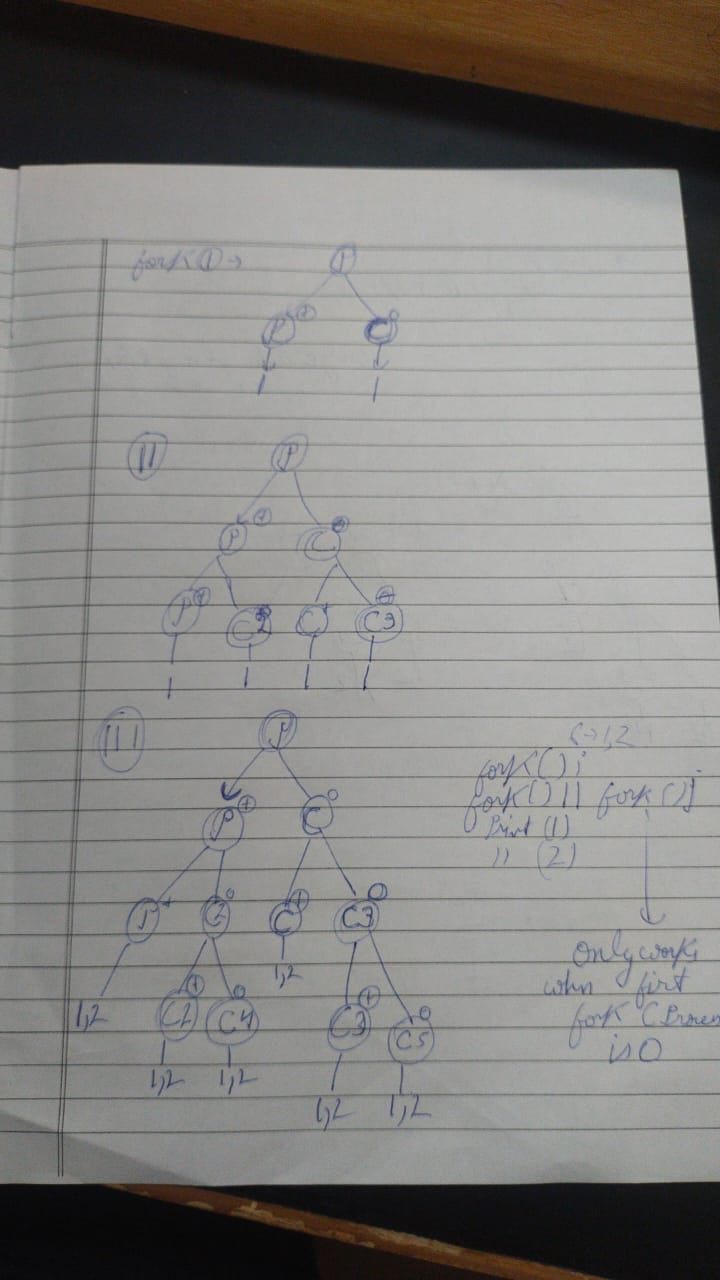 fork ① → P
P + C 0
1 1
II P
P + C 0
P + C2 C + C3
1 1 1 1
III P
P + C 0
P + C2 0 C + C3 0
1,2 1,2
C2 + C4 0 C3 + C5 0
1,2 1,2 1,2 1,2
↳ 1,2
fork();
fork() || fork();
Print (1)
" (2)
Only works
when first
fork
is 0